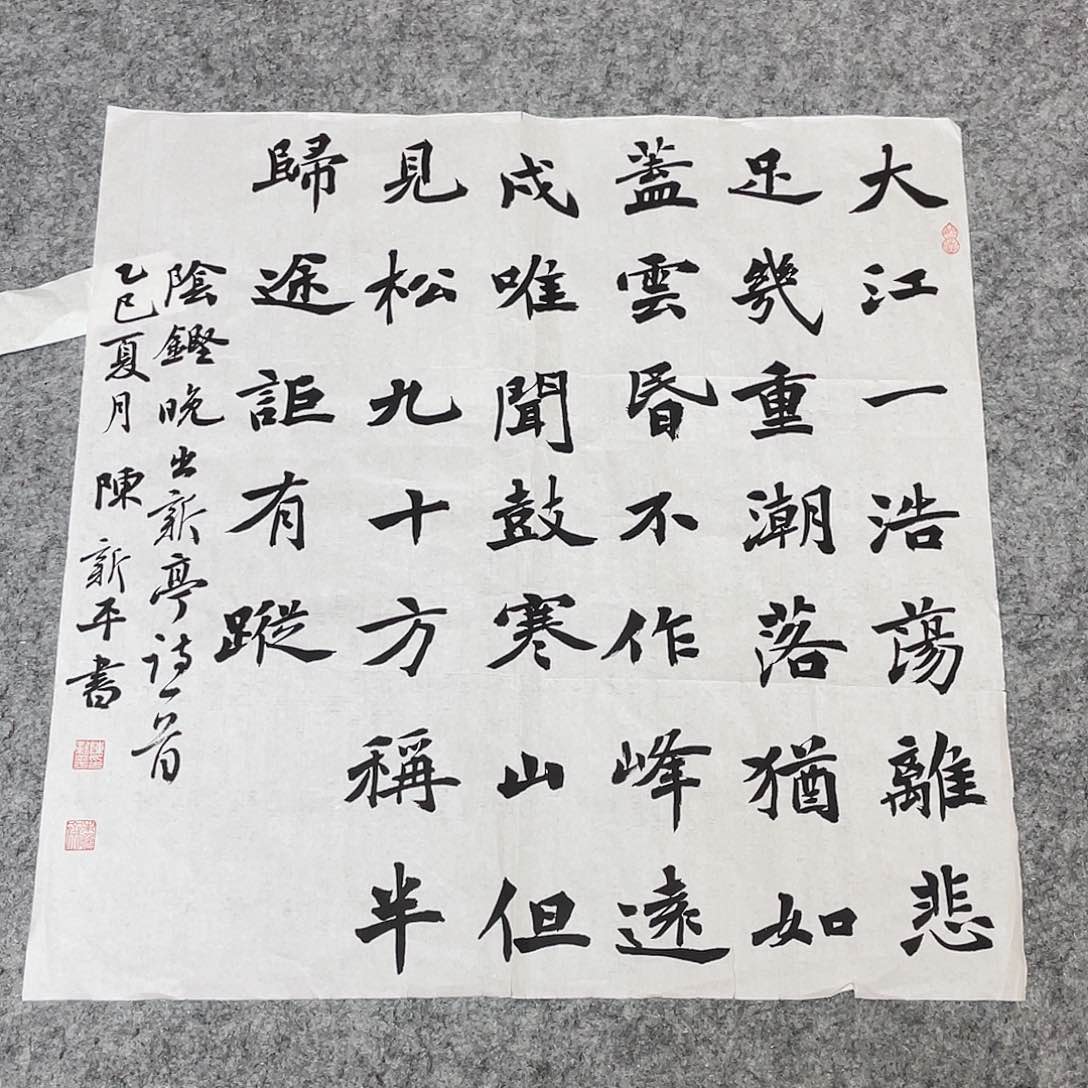 大江一浩蕩離悲
足幾重潮落猶如
蓋雲昬不作峰遠
戍唯聞鼓寒山但
見松九十方稱半
歸途詎有蹤
陰鏗晚出新亭詩一首
乙巳夏月 陳新平書